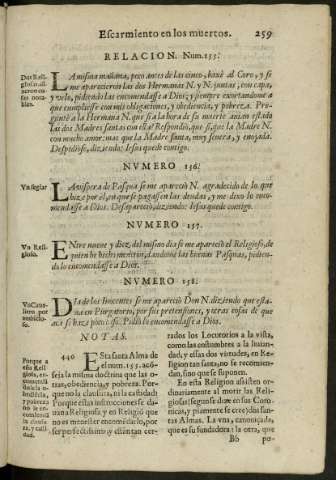 Escarmiento en los muertos. 259
RELACION. Num. 155.
Dos Religiosas
LA misma mañana, poco antes de las cinco, baxè al Coro, y se
me aparecieron las dos Hermanas N. y N. juntas, con capa,
y velo, pidiendo las encomendasse a Dios; y siempre exortandome a
que cumpliesse con mis obligaciones, y obediencia, y pobreza. Pregunté
à la Hermana N. que si a la hora de su muerte avian estado
las dos Madres santas con ella? Respondiò, que si, que la Madre N.
con mucho amor; mas que la Madre santa, muy severa, y enojada.
Despidiòse, diziendo: Iesus quede contigo.
NVMERO 156.
Vn seglar
LA vispera de Pasqua se me apareciò N. agradecido de lo que
hize por el, en que se pagassen las deudas, y me dixo lo encomendasse
a Dios. Desapareciò, diziendo: Iesus quede contigo.
NVMERO 157.
Vn Religioso.
ENtre nueve y diez, del mismo dia se me apareciò el Religioso, de
quien he hecho mencion, dandome las buenas Pasquas, pidiendo
lo encomendasse a Dios.
NVMERO 158.
DIa de los Inocentes se me apareciò Don N. diziendo que estava
en Purgatorio, por sus pretensiones, y otras cosas de que
aca se haze poco caso. Pidiò lo encomendasse a Dios.
NOTAS.
Porque a
esta Religiosa,
encomienda
la obediencia,
y pobreza
no le encomienda
la clausura,
y castidad.
440 ESta santa Alma de
el num. 155. aconseja
la misma doctrina que las otras,
obediencia, y pobreza. Porque
no la clausura, ni la castidad?
Porque estas instrucciones se davan
a Religiosa, y en Religiõ que
no es menester amonestarlo, por
ser perfectissimo, y estàn cerrados
los Locutorios a la vista,
como las costumbres a la liviandad,
y essas dos virtudes, en Religion
tan santa, no se recomiendan,
sino que se suponen.
En esta Religion assisten ordinariamente
al morir las Religiosas
segun se dize en sus Coronicas,
y piamente se cree) dos santas
Almas. La vna, canonizada,
que es su fundadora: la otra, que
Bb po-